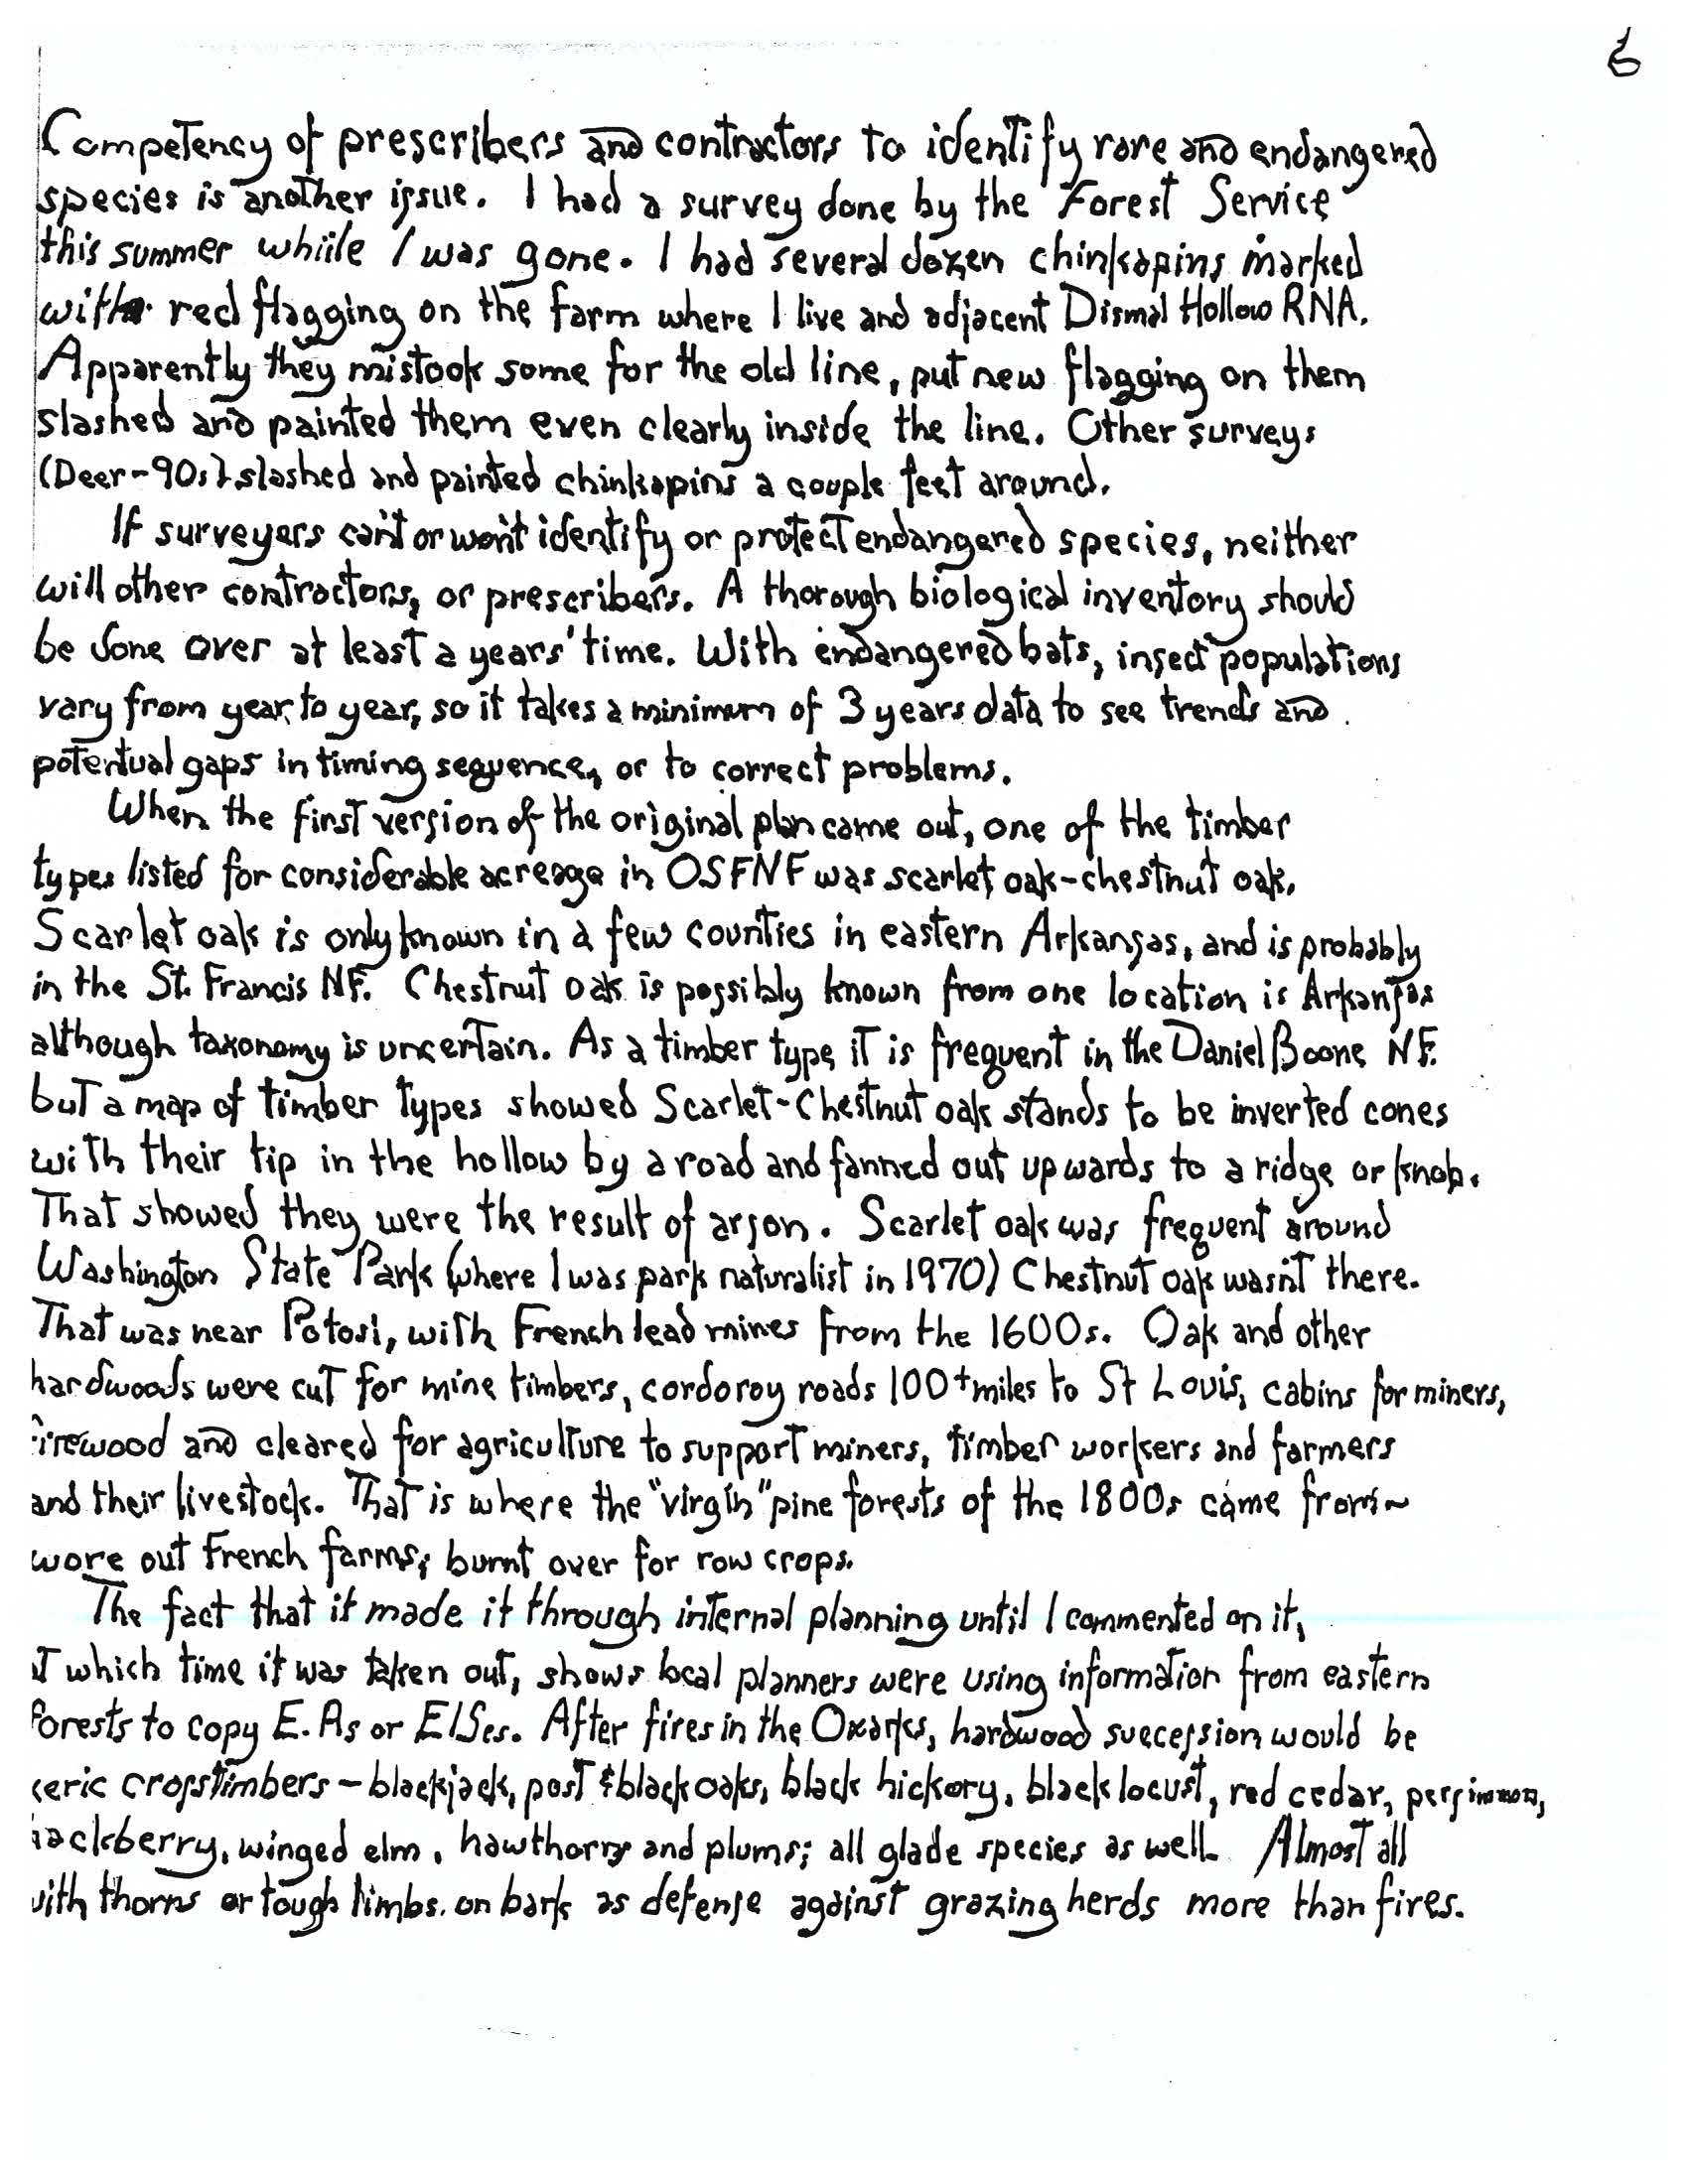 6
Competency of prescribers and contractors to identify rare and endangered
species is another issue. I had a survey done by the Forest Service
this summer whiile I was gone. I had several dozen chinkapins marked
with red flagging on the farm where I live and adjacent Dismal Hollow RNA.
Apparently they mistook some for the old line, put new flagging on them
slashed and painted them even clearly inside the line. Other surveys
(Deer-90s) slashed and painted chinkapins a couple feet around.
If surveyers can't or won't identify or protect endangered species, neither
will other contractors, or prescribers. A thorough biological inventory should
be done over at least a years' time. With endangered bats, insect populations
vary from year to year, so it takes a minimum of 3 years data to see trends and
potentual gaps in timing sequence, or to correct problems.
When the first version of the original plan came out, one of the timber
types listed for considerable acreage in OSFNF was scarlet oak-chestnut oak.
Scarlet oak is only known in a few counties in eastern Arkansas, and is probably
in the St. Francis NF. Chestnut oak is possibly known from one location is Arkansas
although taxonomy is uncertain. As a timber type it is frequent in the Daniel Boone NF.
but a map of timber types showed Scarlet-Chestnut oak stands to be inverted cones
with their tip in the hollow by a road and fanned out upwards to a ridge or knob.
That showed they were the result of arson. Scarlet oak was frequent around
Washington State Park (where I was park naturalist in 1970) Chestnut oak wasn't there.
That was near Potosi, with French lead mines from the 1600s. Oak and other
hardwoods were cut for mine timbers, cordoroy roads 100+ miles to St Louis, cabins for miners,
firewood and cleared for agriculture to support miners, timber workers and farmers
and their livestock. That is where the "virgin" pine forests of the 1800s came from~
wore out French farms; burnt over for row crops.
The fact that it made it through internal planning until I commented on it,
at which time it was taken out, shows local planners were using information from eastern
forests to copy E.As or EISes. After fires in the Ozarks, hardwood succession would be
xeric crosstimbers - blackjack, post & black oaks, black hickory, black locust, red cedar, persimmon,
hackberry, winged elm, hawthorn and plums; all glade species as well. Almost all
with thorns or tough limbs. on bark as defense against grazing herds more than fires.